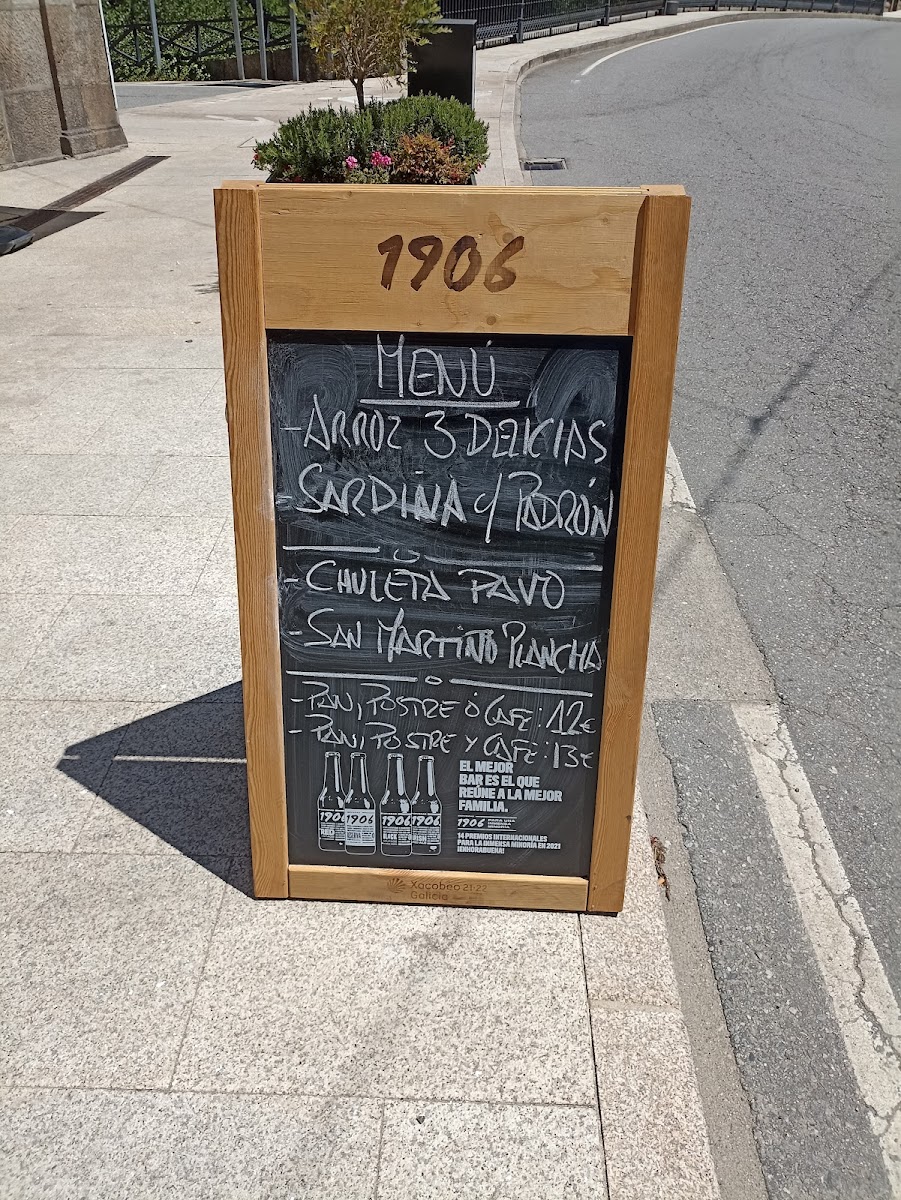 1906
MENÚ
-ARROZ 3 DELICIAS
-SARDIÑA Y PADRÓN
-CHULETA PAVO
-SAN MARTIÑO PLANCHA
-PAN, POSTRE Ó CAFE: 12€
-PAN, POSTRE Y CAFE: 13€
EL MEJOR
BAR ES EL QUE
REÚNE A LA MEJOR
FAMILIA.
1906 PARA UNA INMENSA MINORÍA
14 PREMIOS INTERNACIONALES
PARA LA INMENSA MINORÍA EN 2021
¡ENHORABUENA!
1906 1906 1906 1906
Xacobeo 21·22
Galicia